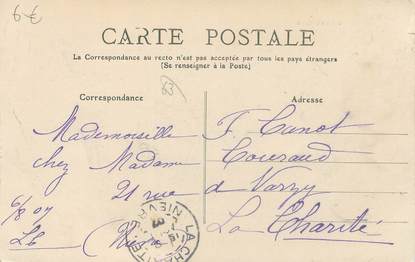 6€
CARTE POSTALE
La Correspondance au recto n'est pas acceptée par tous les pays étrangers
(Se renseigner à la Poste)
63
Correspondance
Adresse
Mademoiselle F. Canot
chez Madame Couraud
21 rue de Varzy
La Charité
6/8 07
Lb
LA CHARITE
NIEVRE